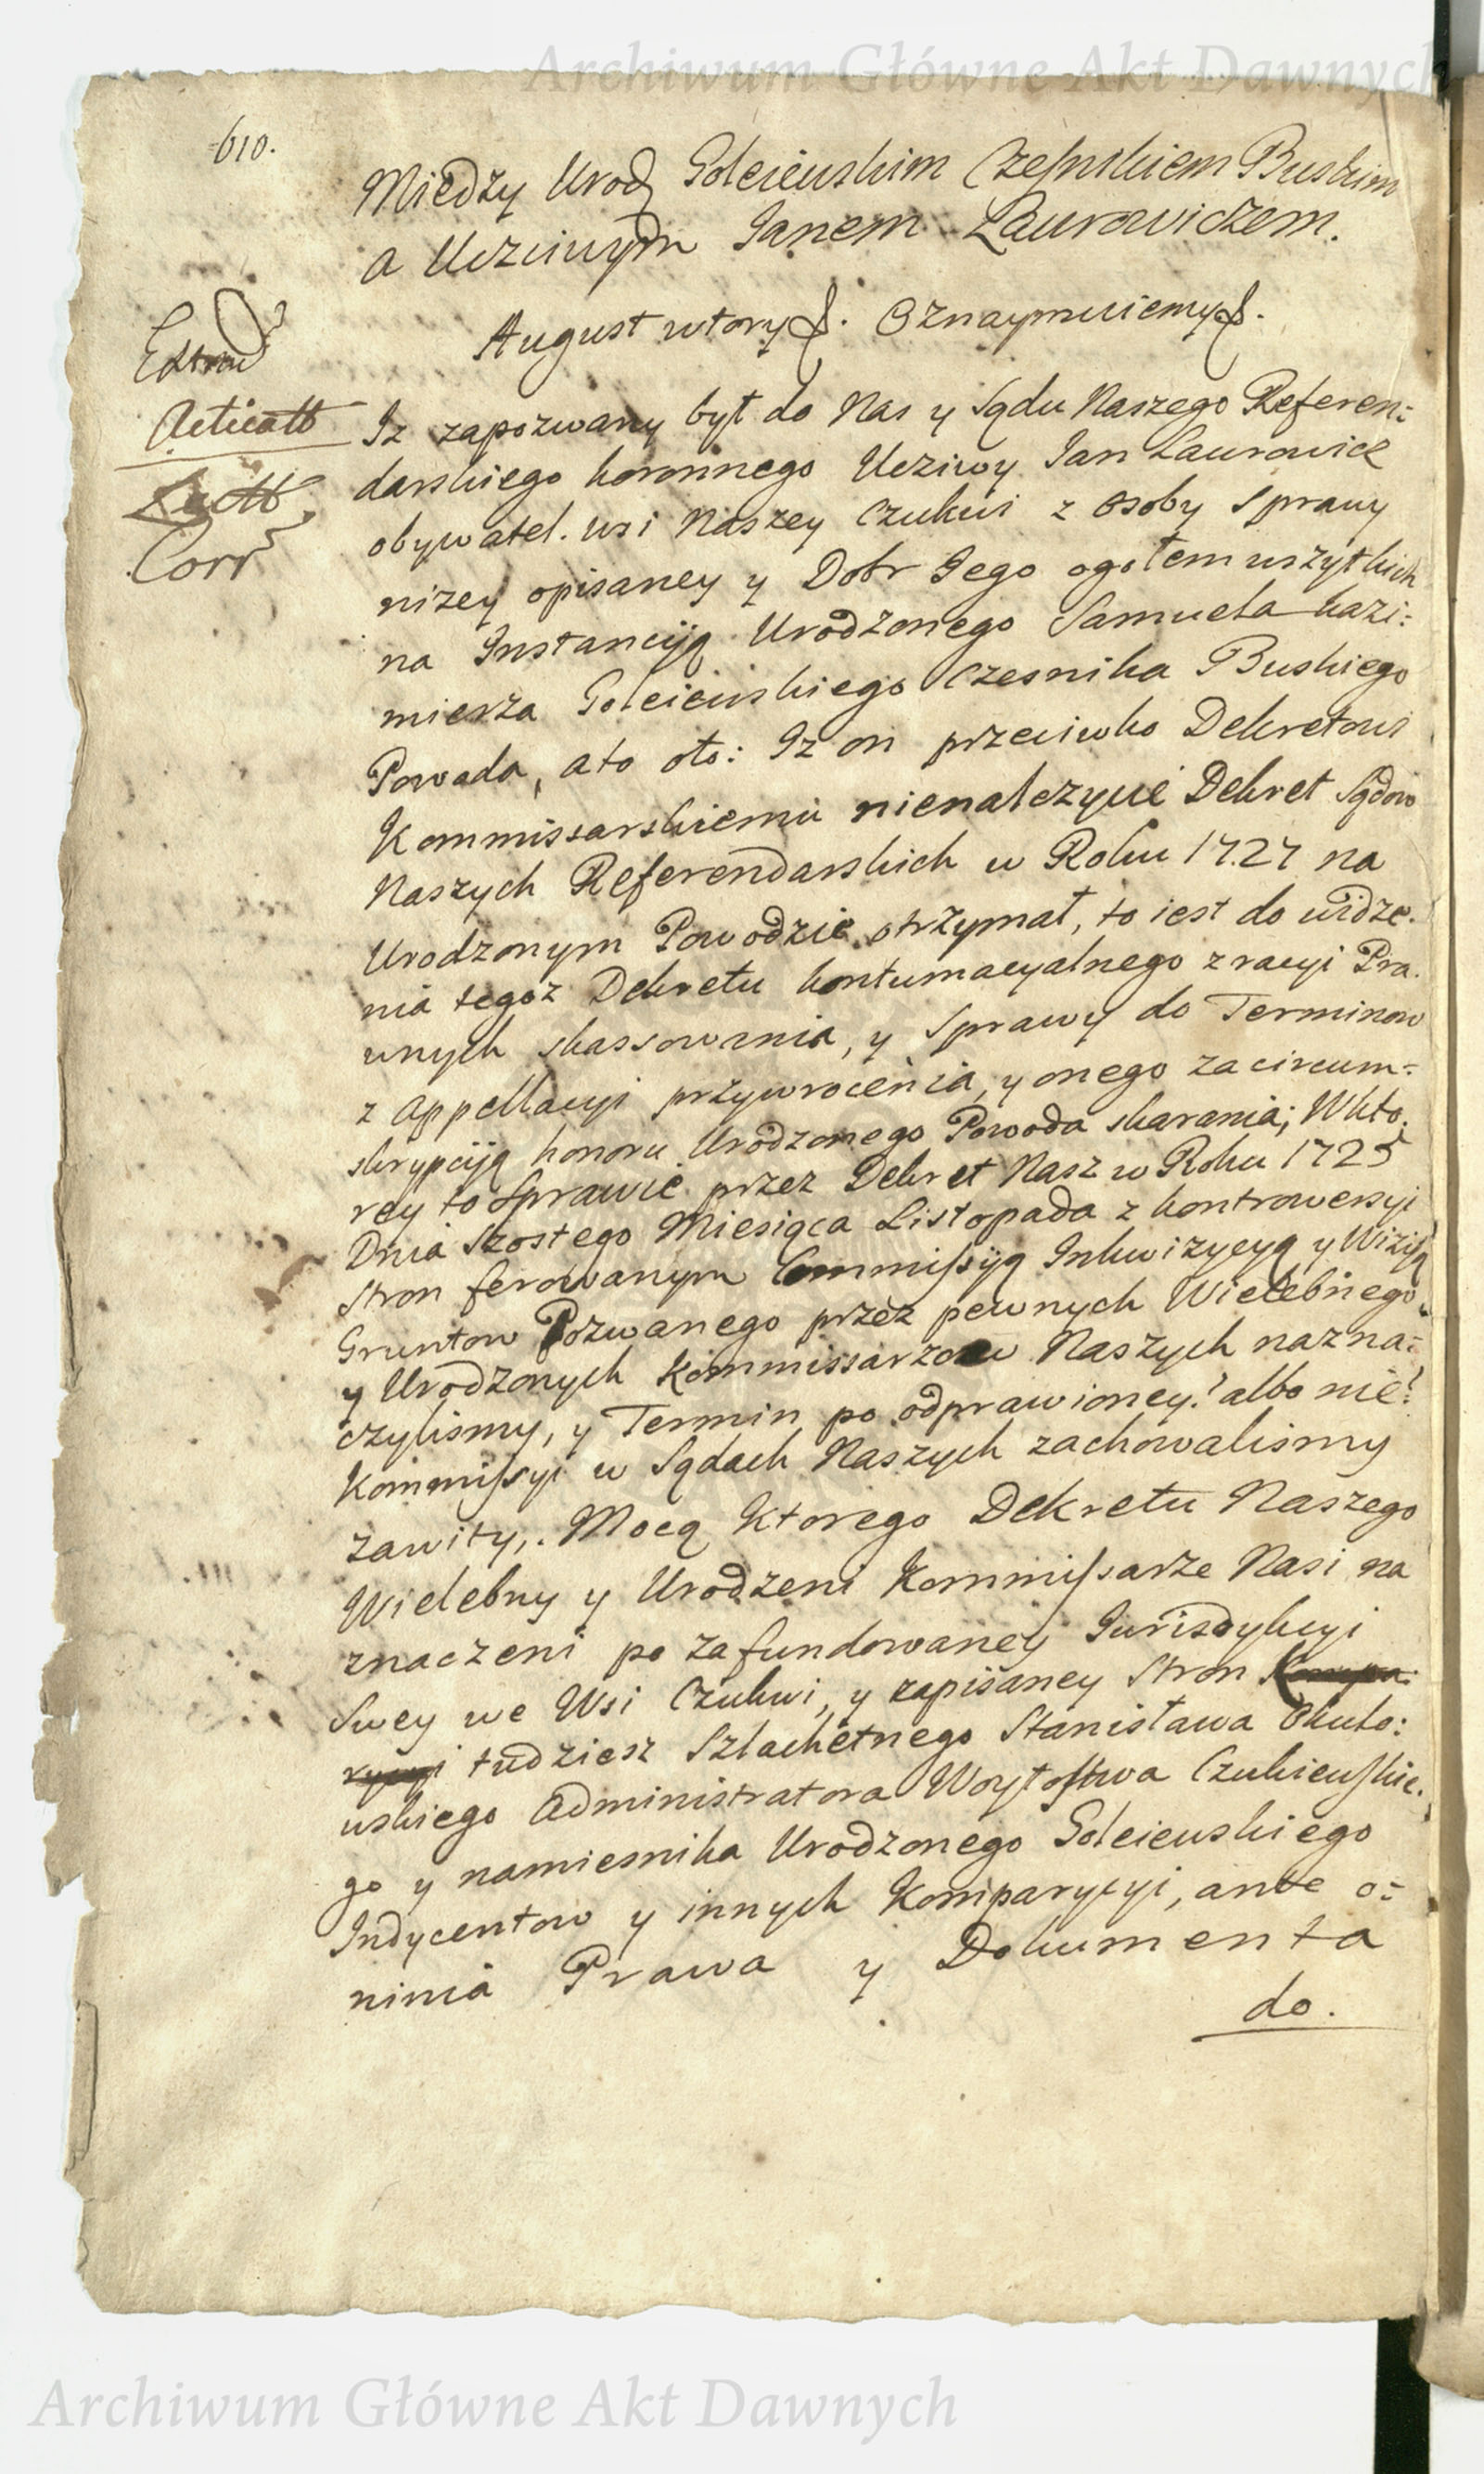 Archiwum Główne Akt Dawnych
610.
Między Urod Goleiewskim Czesnikiem Buskim
a Uczciwym Janem Laurowiczem.
August wtory. Oznaymuiemy.
Extrad
Acticatt
Lectt
Corr
Iz zapozwany był do Nas y Sądu Naszego Referen:
darskiego koronnego Uczciwy Jan Laurowicz
obywatel. wsi Naszey Czukwi z osoby sprawy
nizey opisaney y Dobr Jego ogołem wszytkich
na Instancyją Urodzonego Samuela Kazi:
mierza Goleiewskiego Czesnika Buskiego
Powada, a to oto: Iz on przeciwko Dekretowi
Kommissarskiemu nienalezycie Dekret Sądow
Naszych Referendarskich w Roku 1727 na
Urodzonym Powodzie otrzymał, to iest do widze.
nia tegoz Dekretu kontumacyalnego z racyi Pra.
wnych skassowania, y sprawy do Terminow
z Appellacyi przywrocenia, y onego za circum:
skrypcyją honoru Urodzonego Powoda skarania; W kto.
rey to sprawie przez Dekret Nasz w Roku 1725
Dnia Szostego Miesiąca Listopada z kontrowersyi
Stron ferowanym Commissyją Inkwizycyą y Wizyą
Gruntow Pozwanego przez pewnych Wielebnego
y Urodzonych Kommissarzow Naszych nazna:
czylismy, y Termin po odprawioney? albo nie?
Kommissyi w Sądach Naszych zachowalismy
zawity,. Mocą ktorego Dekretu Naszego
Wielebny y Urodzeni Kommissarze Nasi na
znaczeni po zafundowaney Jurisdykcyi
Swey we Wsi Czukwi, y zapisaney Stron Kompa:
rycyi tudziesz Szlachetnego Stanisława Okuło:
wskiego Administratora Woytostwa Czukiewskie.
go y namiesnika Urodzonego Goleiewskiego
Indycentow y innych Komparycyi, ante o:
nima Prawa y Dokumenta
do.
Archiwum Główne Akt Dawnych